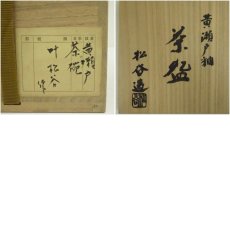 黄瀬戸
茶碗
叶松谷作
黄瀬戸釉
茶盌
松谷造